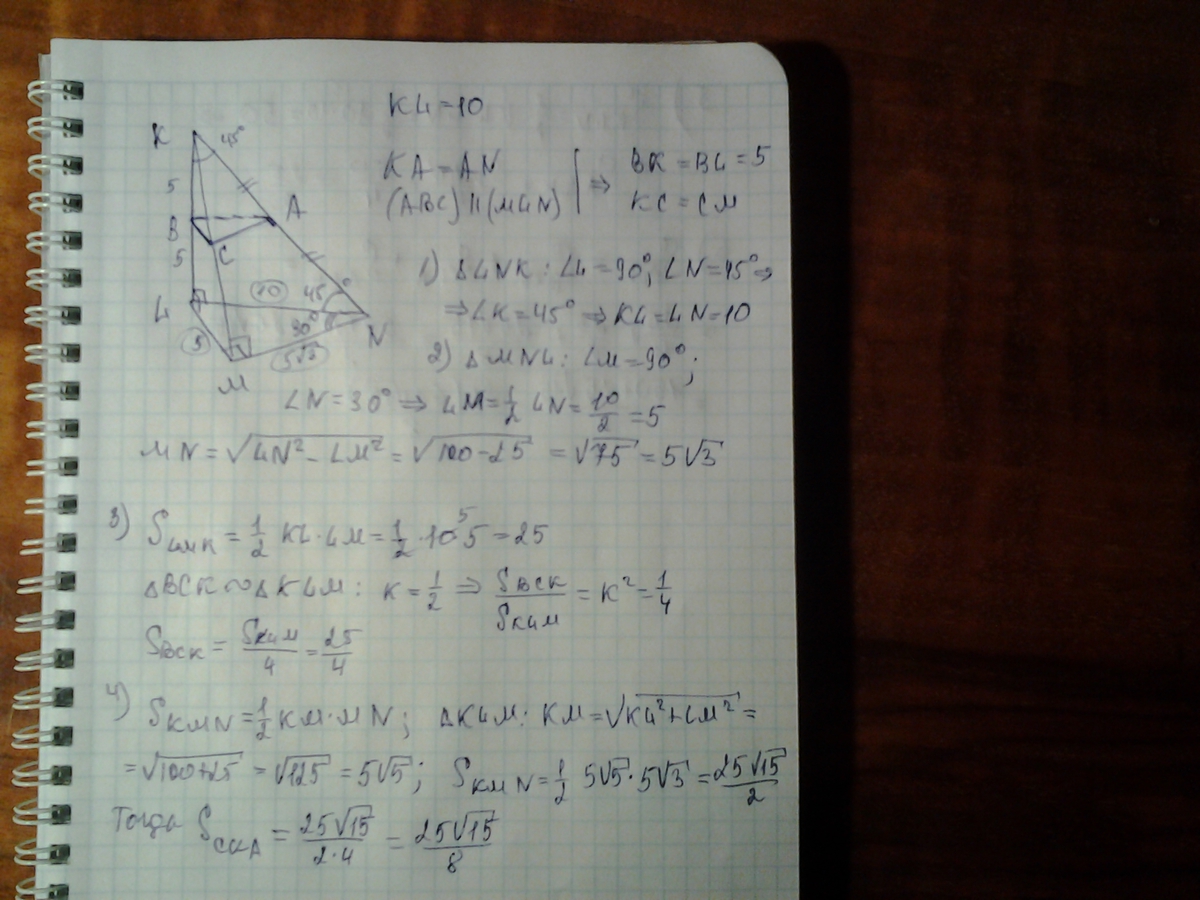 KL = 10
KA = AN
(ABC) || (MLN)
⇒ BK = BL = 5
KC = CM
K
45°
5
B
A
C
5
L
10
45°
30°
N
5
5√3
M
1) ΔLNK : ∠L = 90°; ∠N = 45° ⇒
⇒ ∠K = 45° ⇒ KL = LN = 10
2) ΔMNL : ∠M = 90°;
∠N = 30° ⇒ LM = 1/2 LN = 10/2 = 5
MN = √(LN² − LM²) = √(100 − 25) = √75 = 5√3
3) S_LMK = 1/2 KL · LM = 1/2 · 10 · 5 = 25
5
ΔBCK ∾ ΔKLM : K = 1/2 ⇒ S_BCK/S_KLM = K² = 1/4
S_BCK = S_KLM/4 = 25/4
4) S_KMN = 1/2 KM · MN ; ΔKLM : KM = √(KL² + LM²) =
= √(100 + 25) = √125 = 5√5 ; S_KMN = 1/2 5√5 · 5√3 = 25√15/2
Тогда S_CKA = 25√15/2·4 = 25√15/8